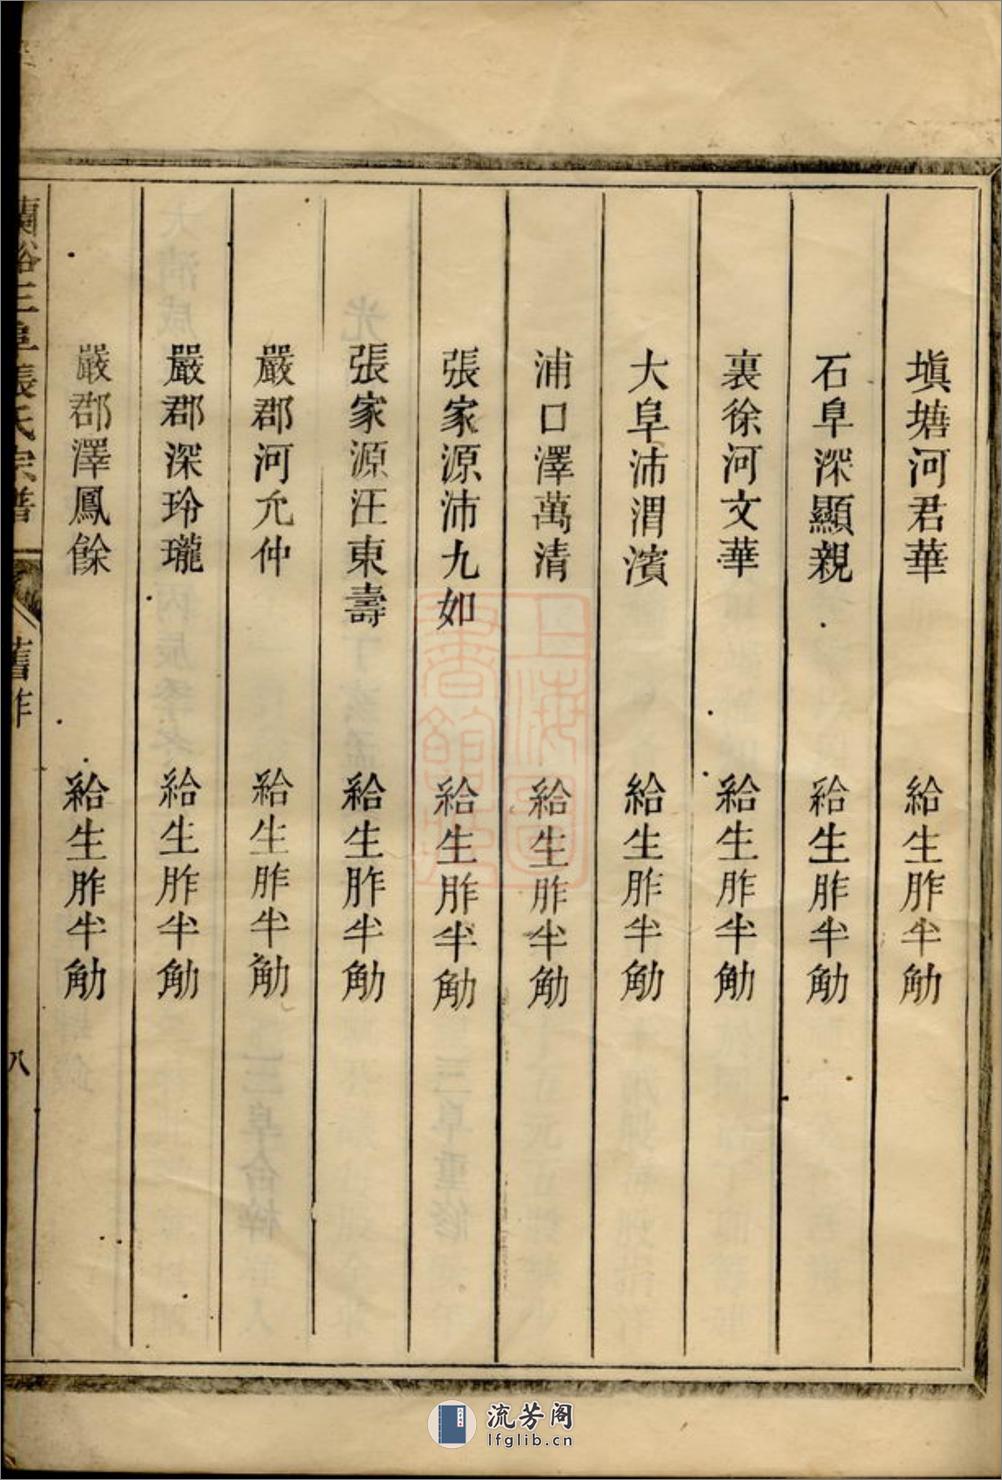 塡塘河君華 給生胙半觔
石阜深顯親 給生胙半觔
裏徐河文華 給生胙半觔
大阜沛渭濱 給生胙半觔
浦口澤萬清 給生胙半觔
張家源沛九如 給生胙半觔
張家源汪東壽 給生胙半觔
嚴郡河允仲 給生胙半觔
嚴郡深玲瓏 給生胙半觔
嚴郡澤鳳餘 給生胙半觔
蘭谿三阜張氏宗譜 舊胙 八
上海圖書館藏
流芳阁
lfglib.cn